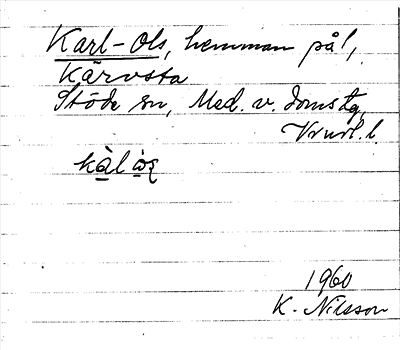 Karl-Ols, hemman på,
Kärvsta
Stöde sn, Med. v. domstg,
l.
kàl òs
1960
K. Nilsson